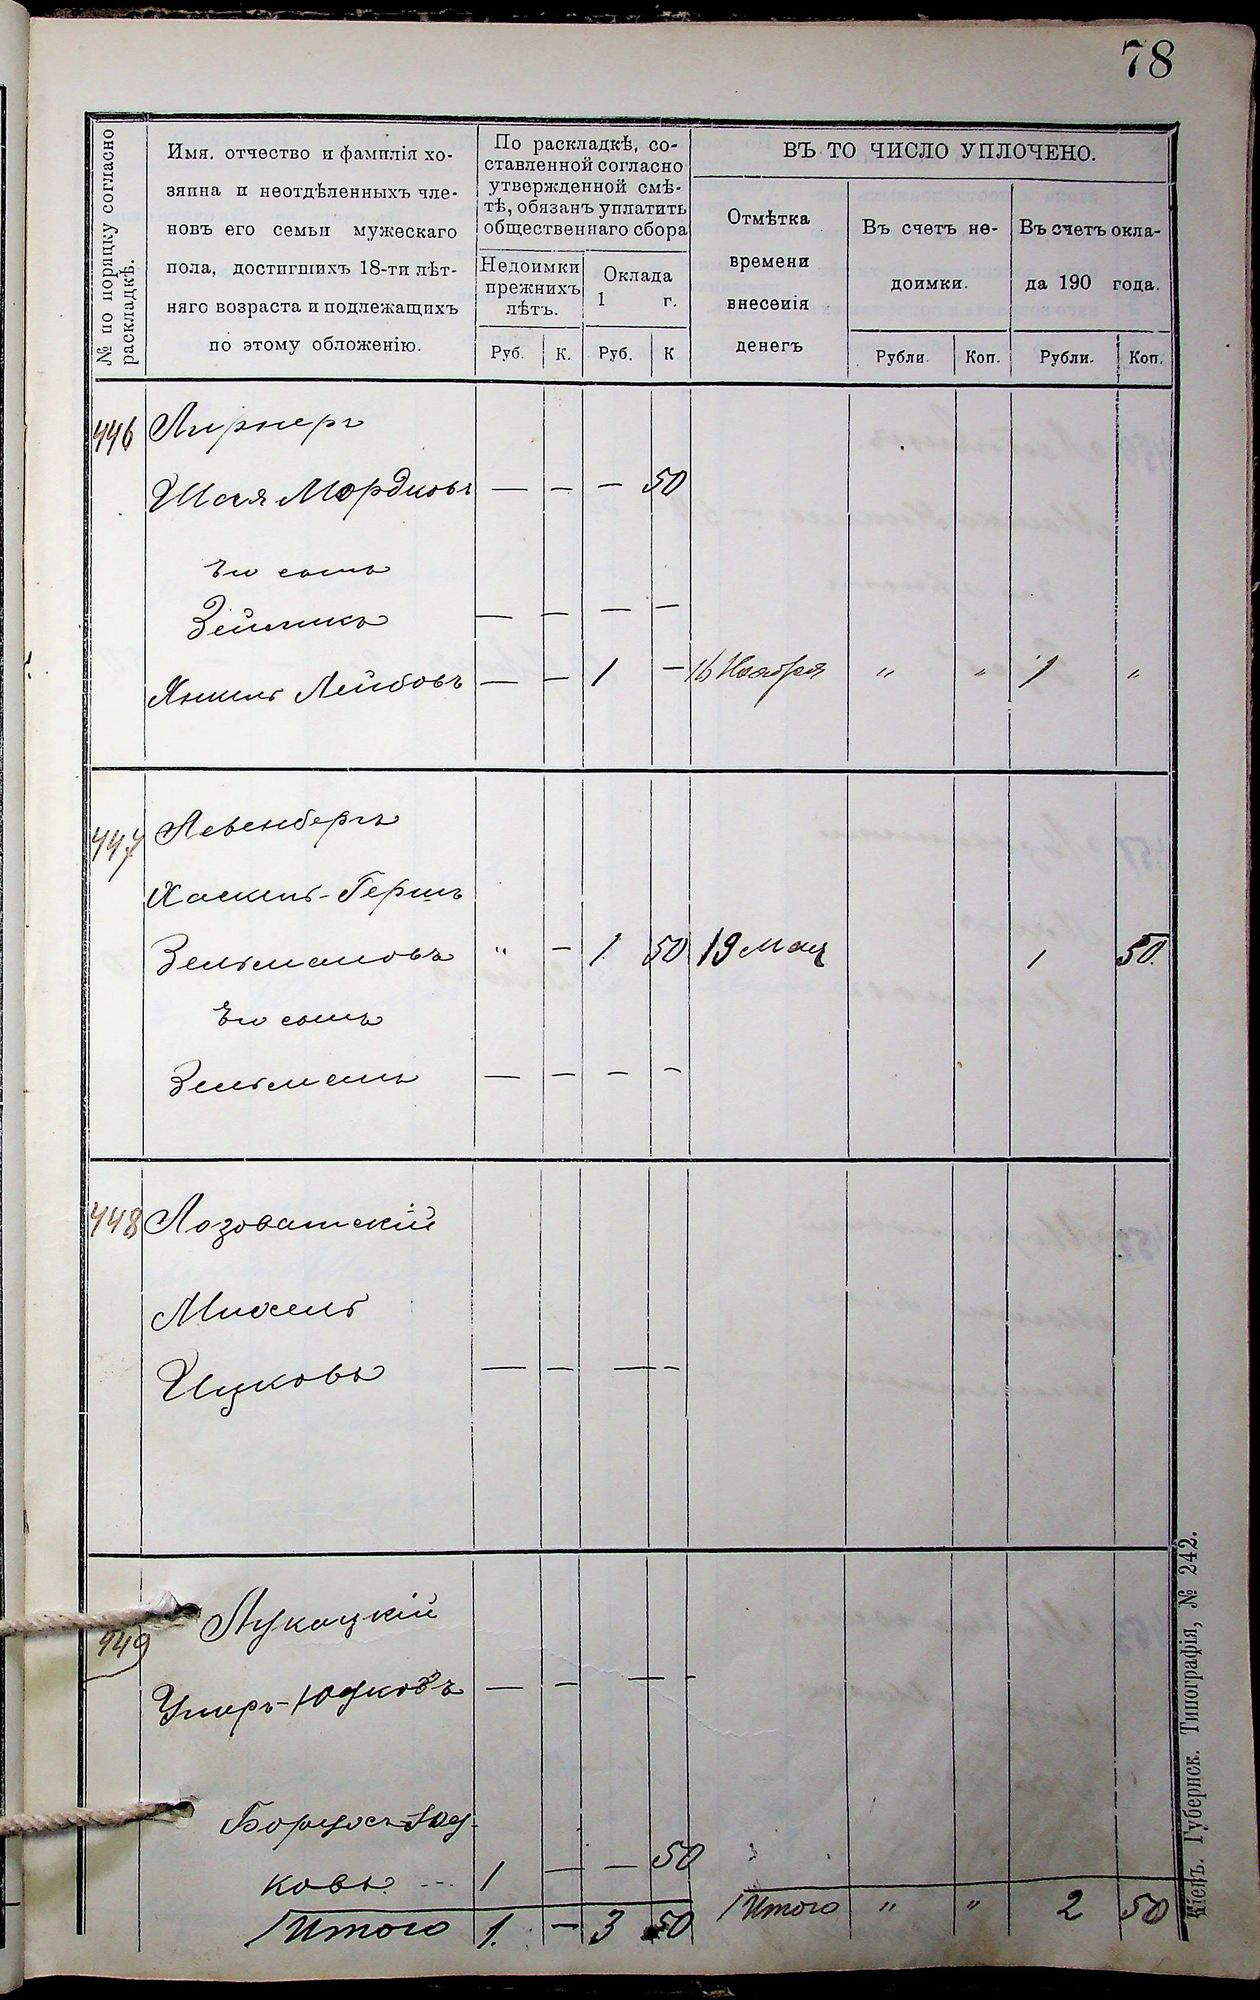 78
№ по порядку согласно раскладкѣ.
Имя, отчество и фамилія хо-
зяина и неотдѣленныхъ чле-
новъ его семьи мужескаго
пола, достигшихъ 18-ти лѣт-
няго возраста и подлежащихъ
по этому обложенію.
По раскладкѣ, со-
ставленной согласно
утвержденной смѣ-
тѣ, обязанъ уплатить
общественнаго сбора
Недоимки
прежнихъ
лѣтъ.
Оклада
1 г.
Руб. К. Руб. К
ВЪ ТО ЧИСЛО УПЛОЧЕНО.
Отмѣтка
времени
внесенія
денегъ
Въ счетъ не-
доимки.
Въ счетъ окла-
да 190 года.
Рубли. Коп. Рубли. Коп.
446 Лирнеръ
Шая Мордковъ — — — 50
Его сынъ
Зейликъ — — — —
Янкель Лейбовъ — — 1 — 16 Ноября " " 1 "
447 Левенбергъ
Хаскель-Гершъ
Зельмановъ " — 1 50 19 Мая 1 50.
Его сынъ
Зельманъ — — — —
448 Лозоватскій
Михель
Ицковъ — — — -
449 Лукацкій
Умеръ-Юдковъ — — — -
Борухъ Юд-
ковъ 1 — — 50
Итого 1. — 3 50 Итого " " 2 50
Кіевъ. Губернск. Типографія, № 242.